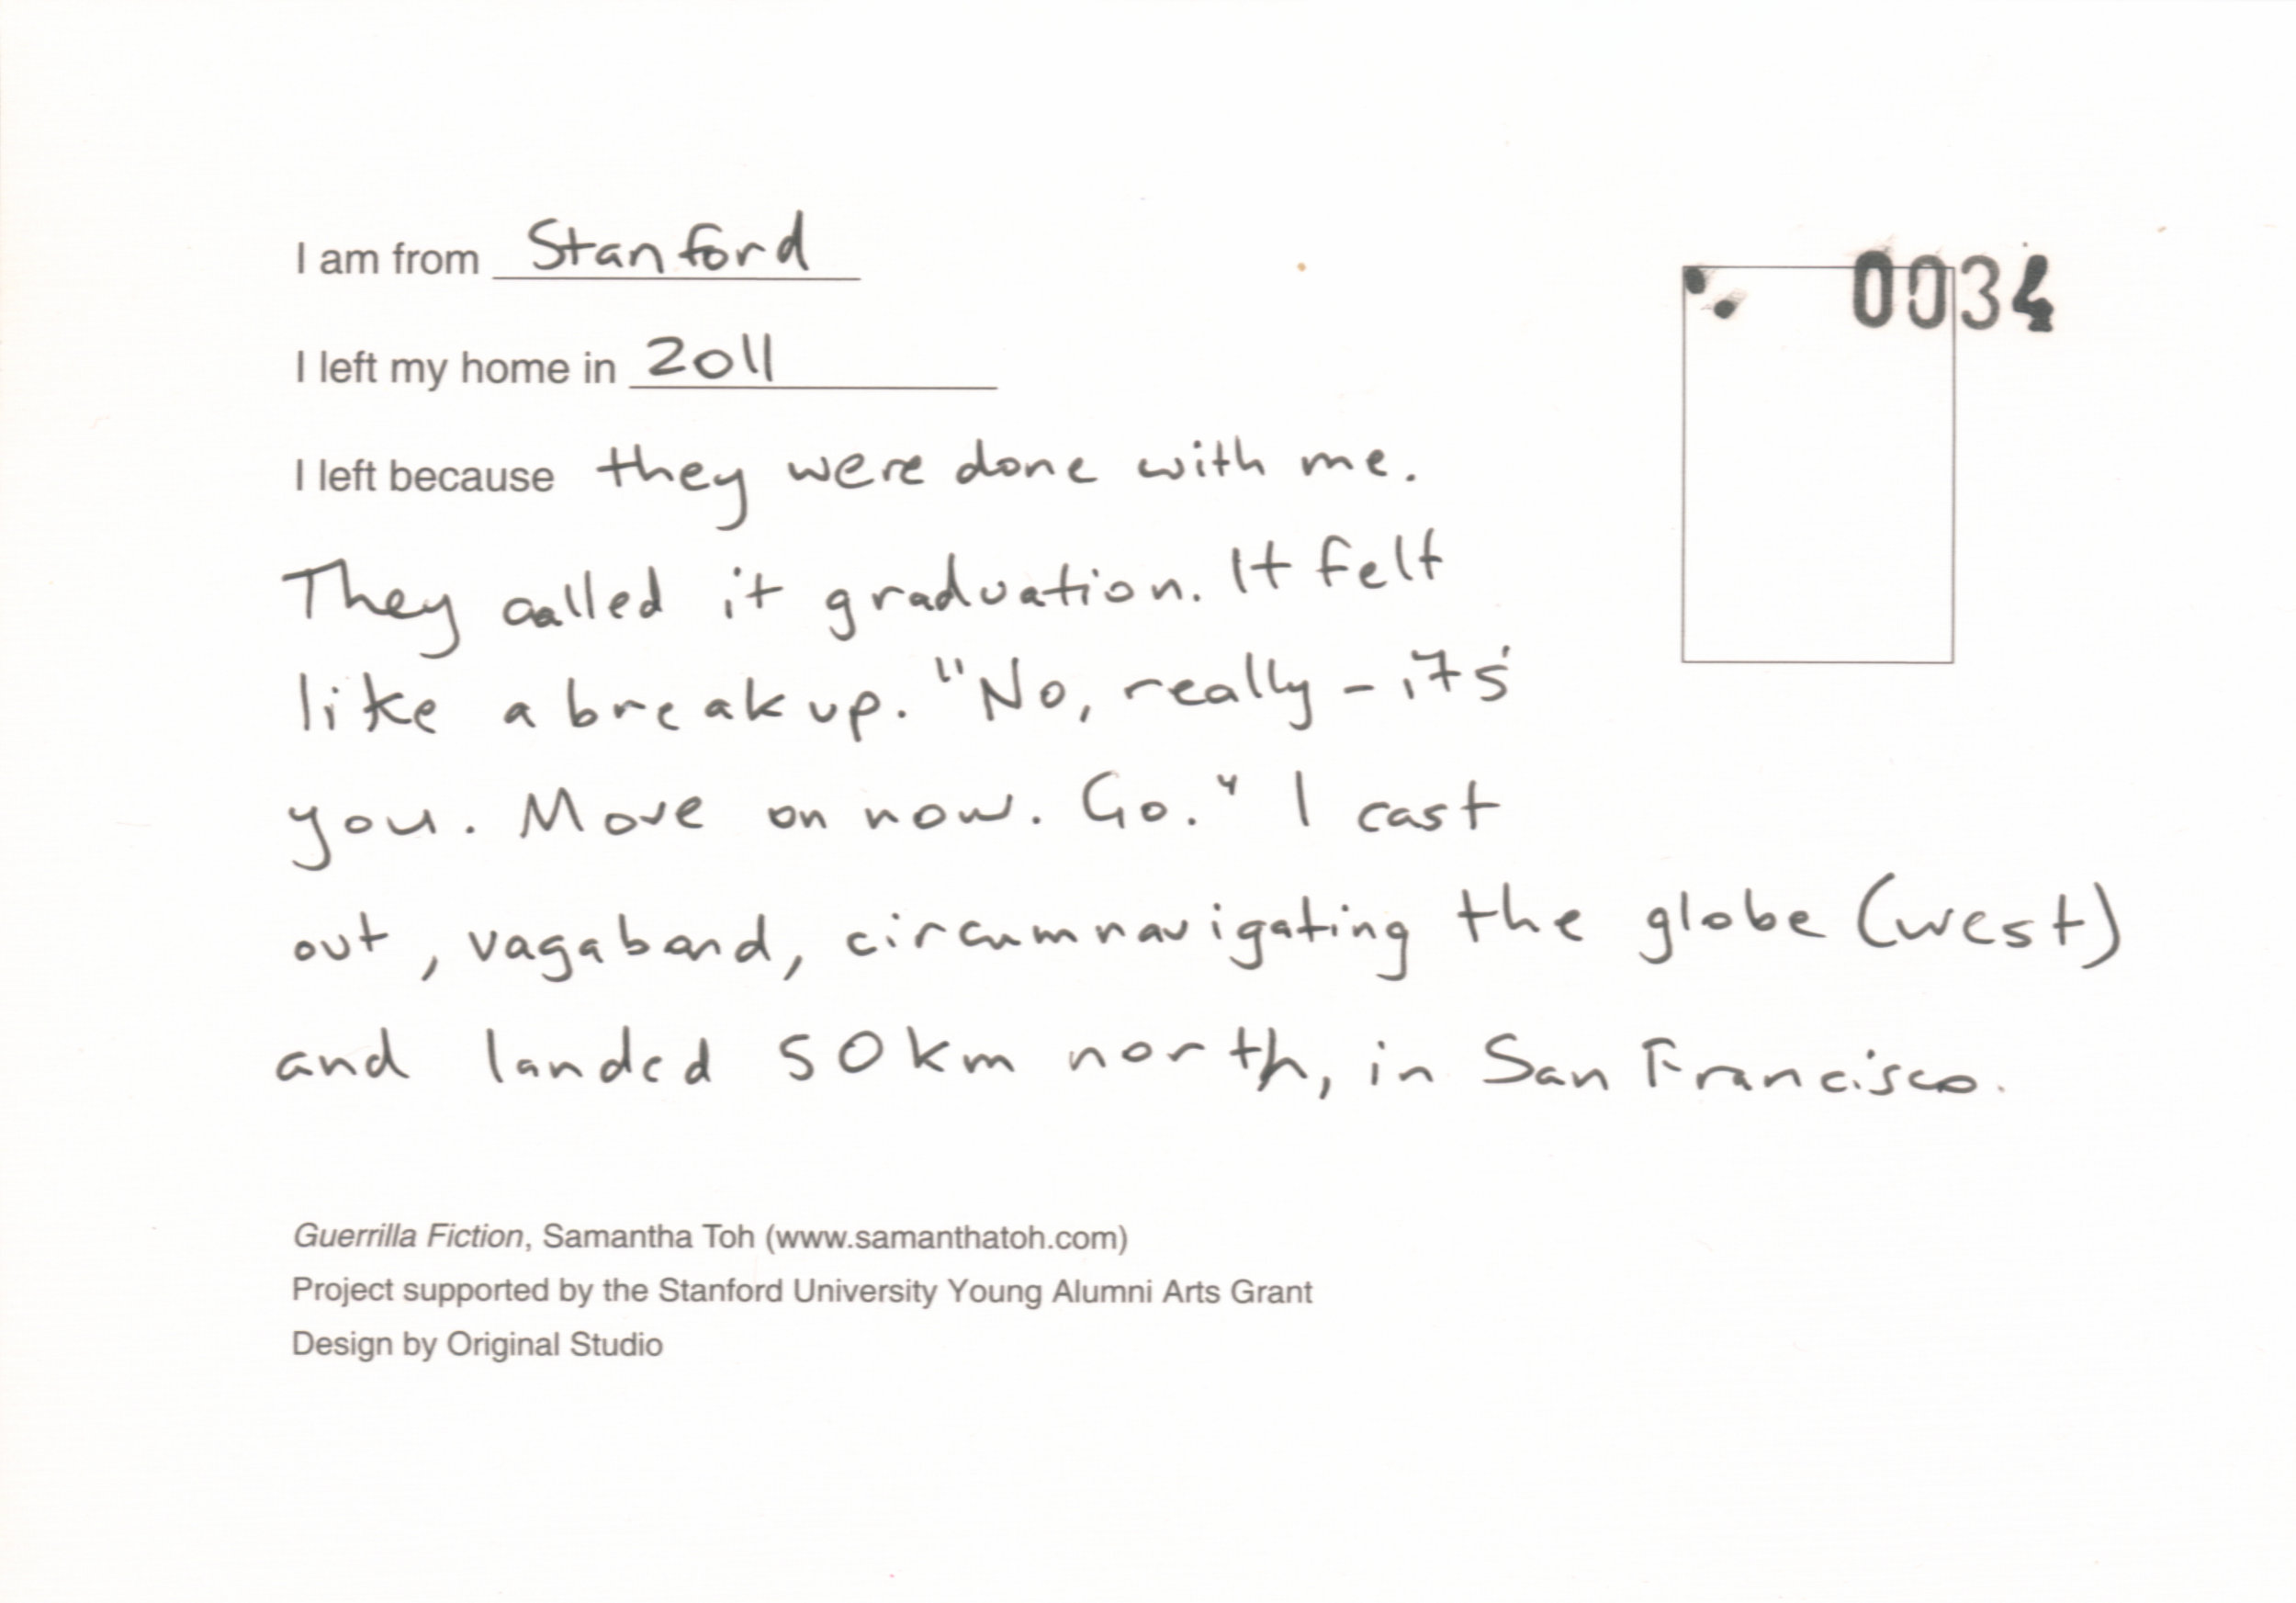 I am from Stanford
0034
I left my home in 2011
I left because they were done with me.
They called it graduation. It felt
like a breakup. "No, really - it's
you. Move on now. Go." I cast
out, vagabond, circumnavigating the globe (west)
and landed 50km north, in San Francisco.
Guerrilla Fiction, Samantha Toh (www.samanthatoh.com)
Project supported by the Stanford University Young Alumni Arts Grant
Design by Original Studio